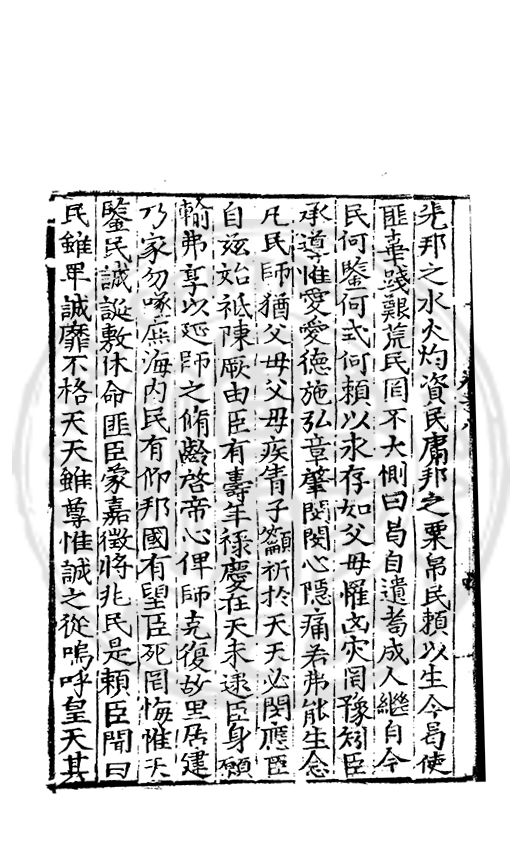 光邦之水火灼資民肅邦之粟帛民賴以生今曷使
匪辜踐艱荒民罔不大惻曰曷自遺耇成人繼自今
民何鑒何式何賴以永存如父母罹凶灾罔豫矧臣
承導惟愛愛德施弘章肇閔閔心隱痛若弗能生念
凡民師猶父母父母疾眚子籲祈於天天必閔應臣
自兹始祗陳厥由臣有壽年祿慶在天未逮臣身願
輸弗享以延師之脩齡啓帝心俾師克復故里居建
乃家勿喙庶海内民有仰邦國有望臣死罔悔惟天
鑒民誠誕敷休命匪臣蒙嘉徵將兆民是賴臣聞曰
民雖畢誠靡不格天天雖尊惟誠之從嗚呼皇天其